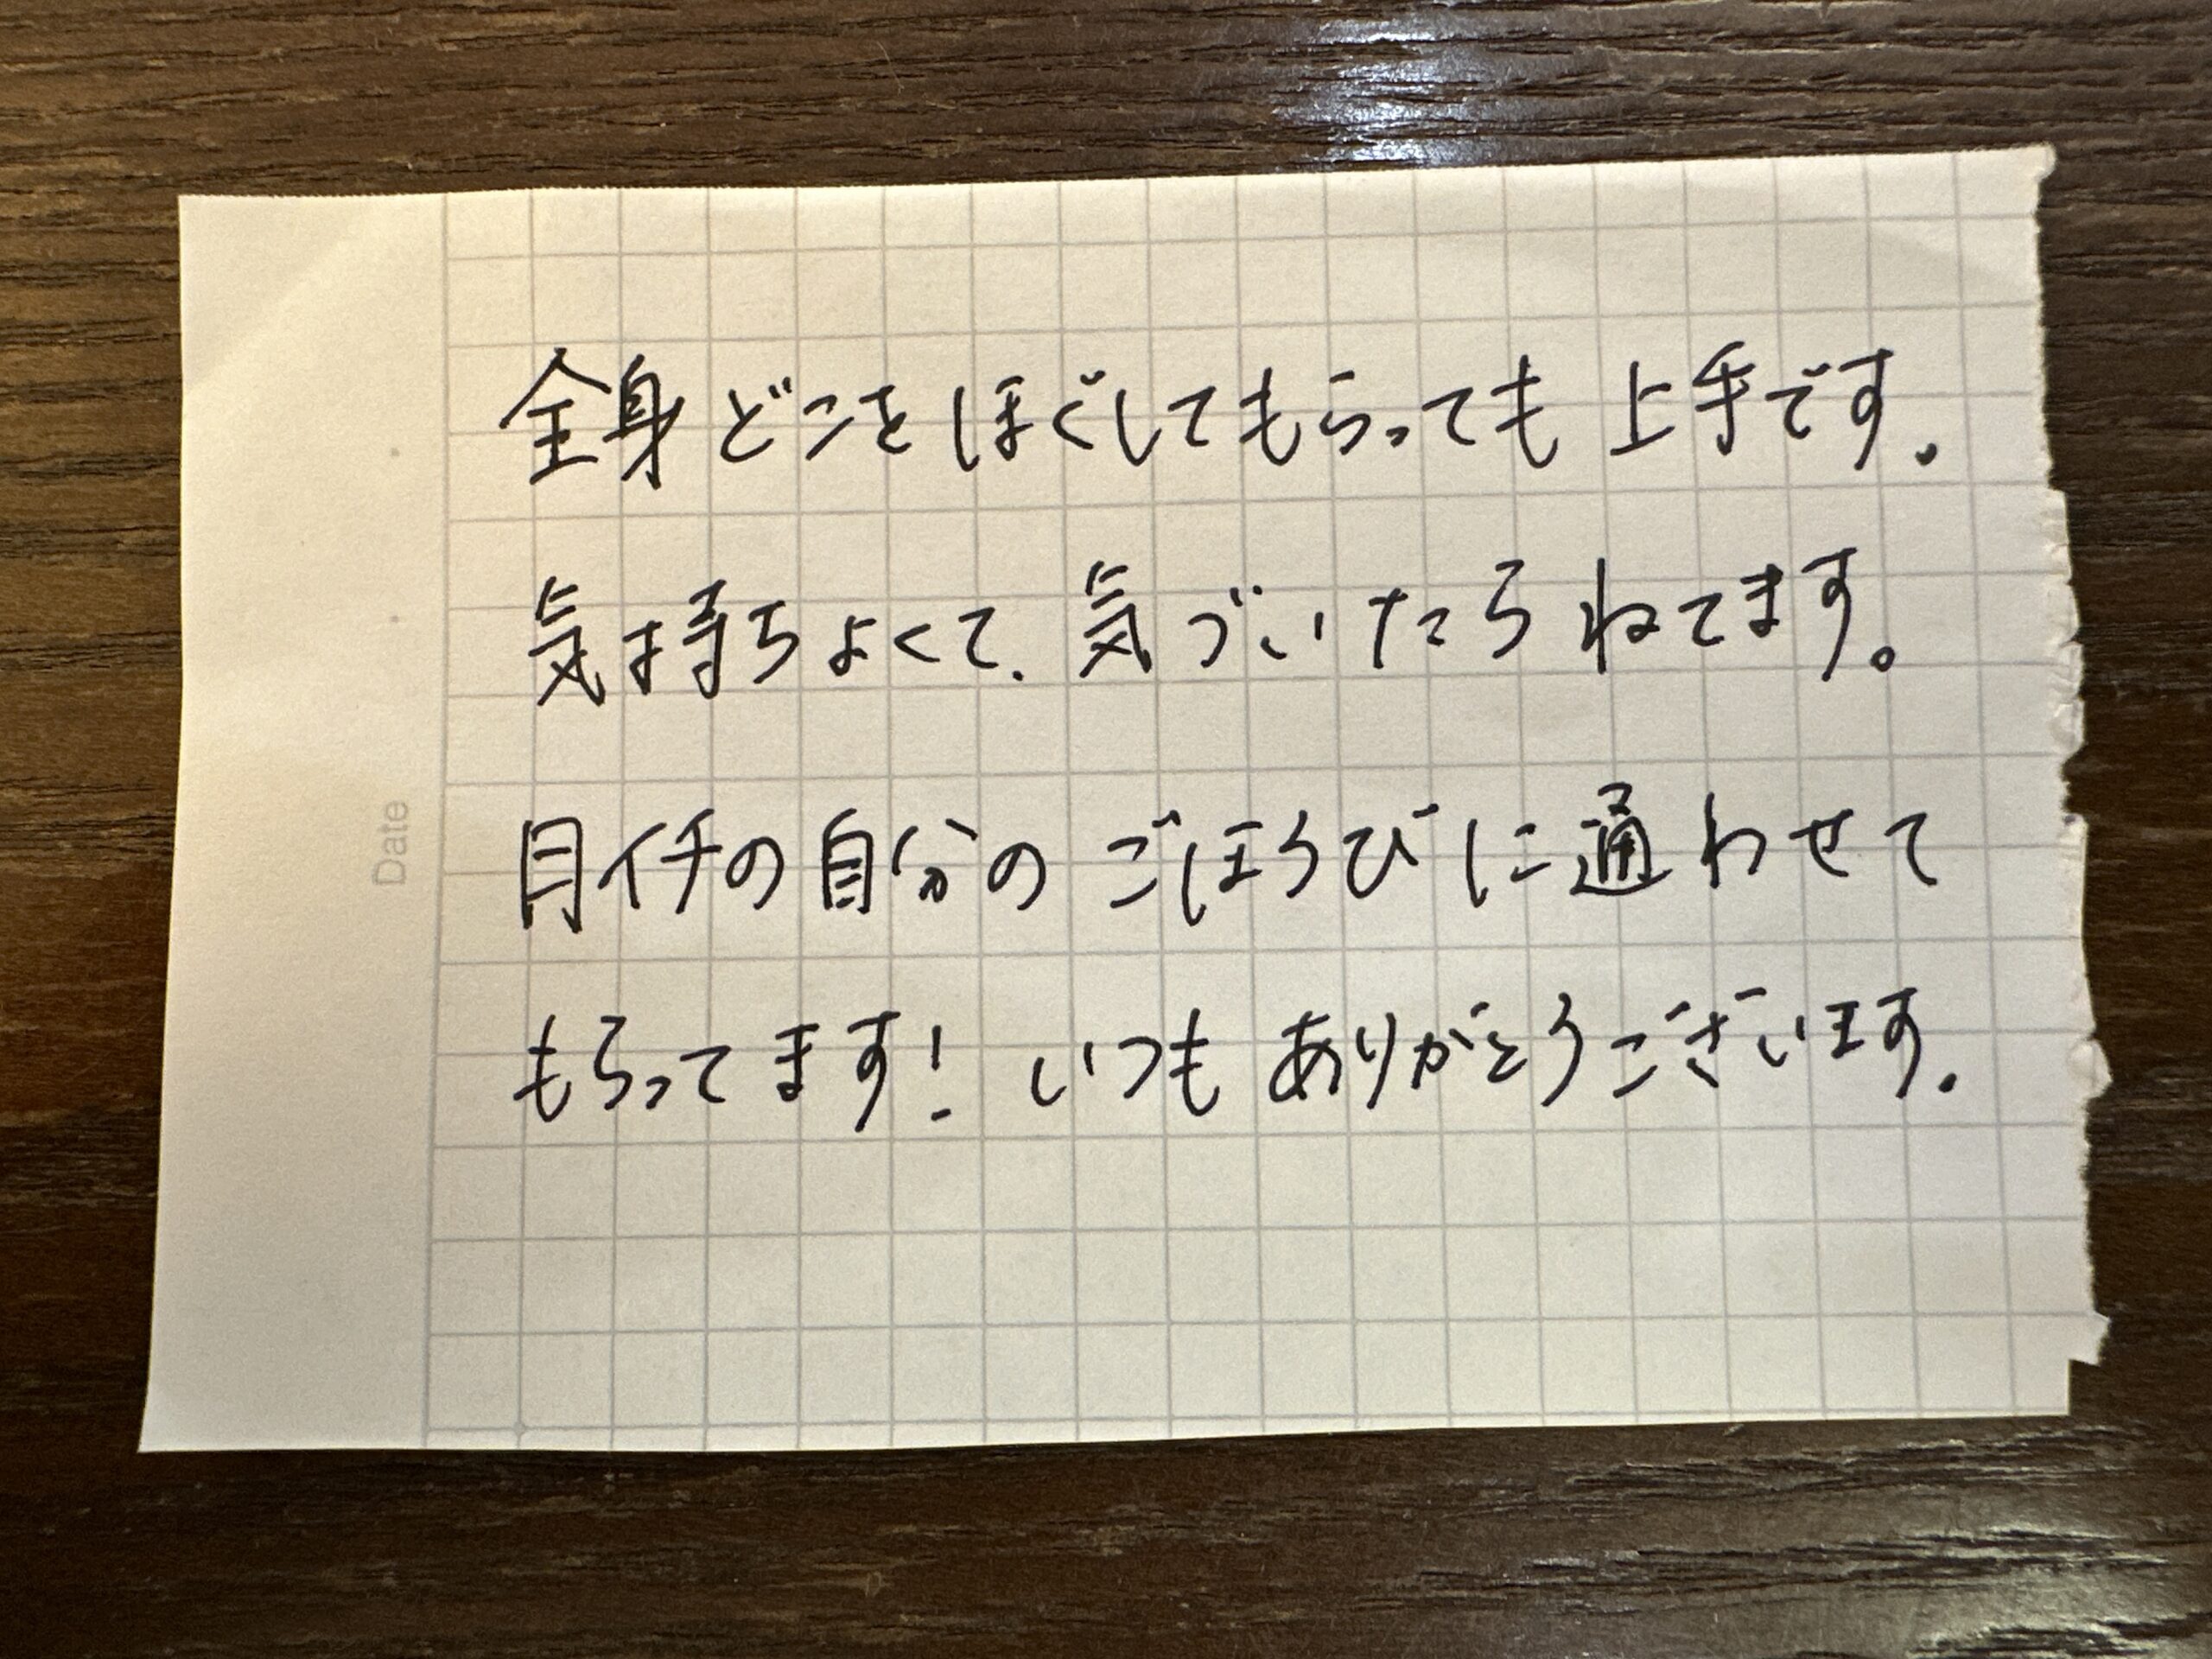 全身どこをほぐしてもらっても上手です。
気持ちよくて、気づいたらねてます。
月イチの自分のごほうびに通わせて
もらってます! いつもありがとうございます。
Date